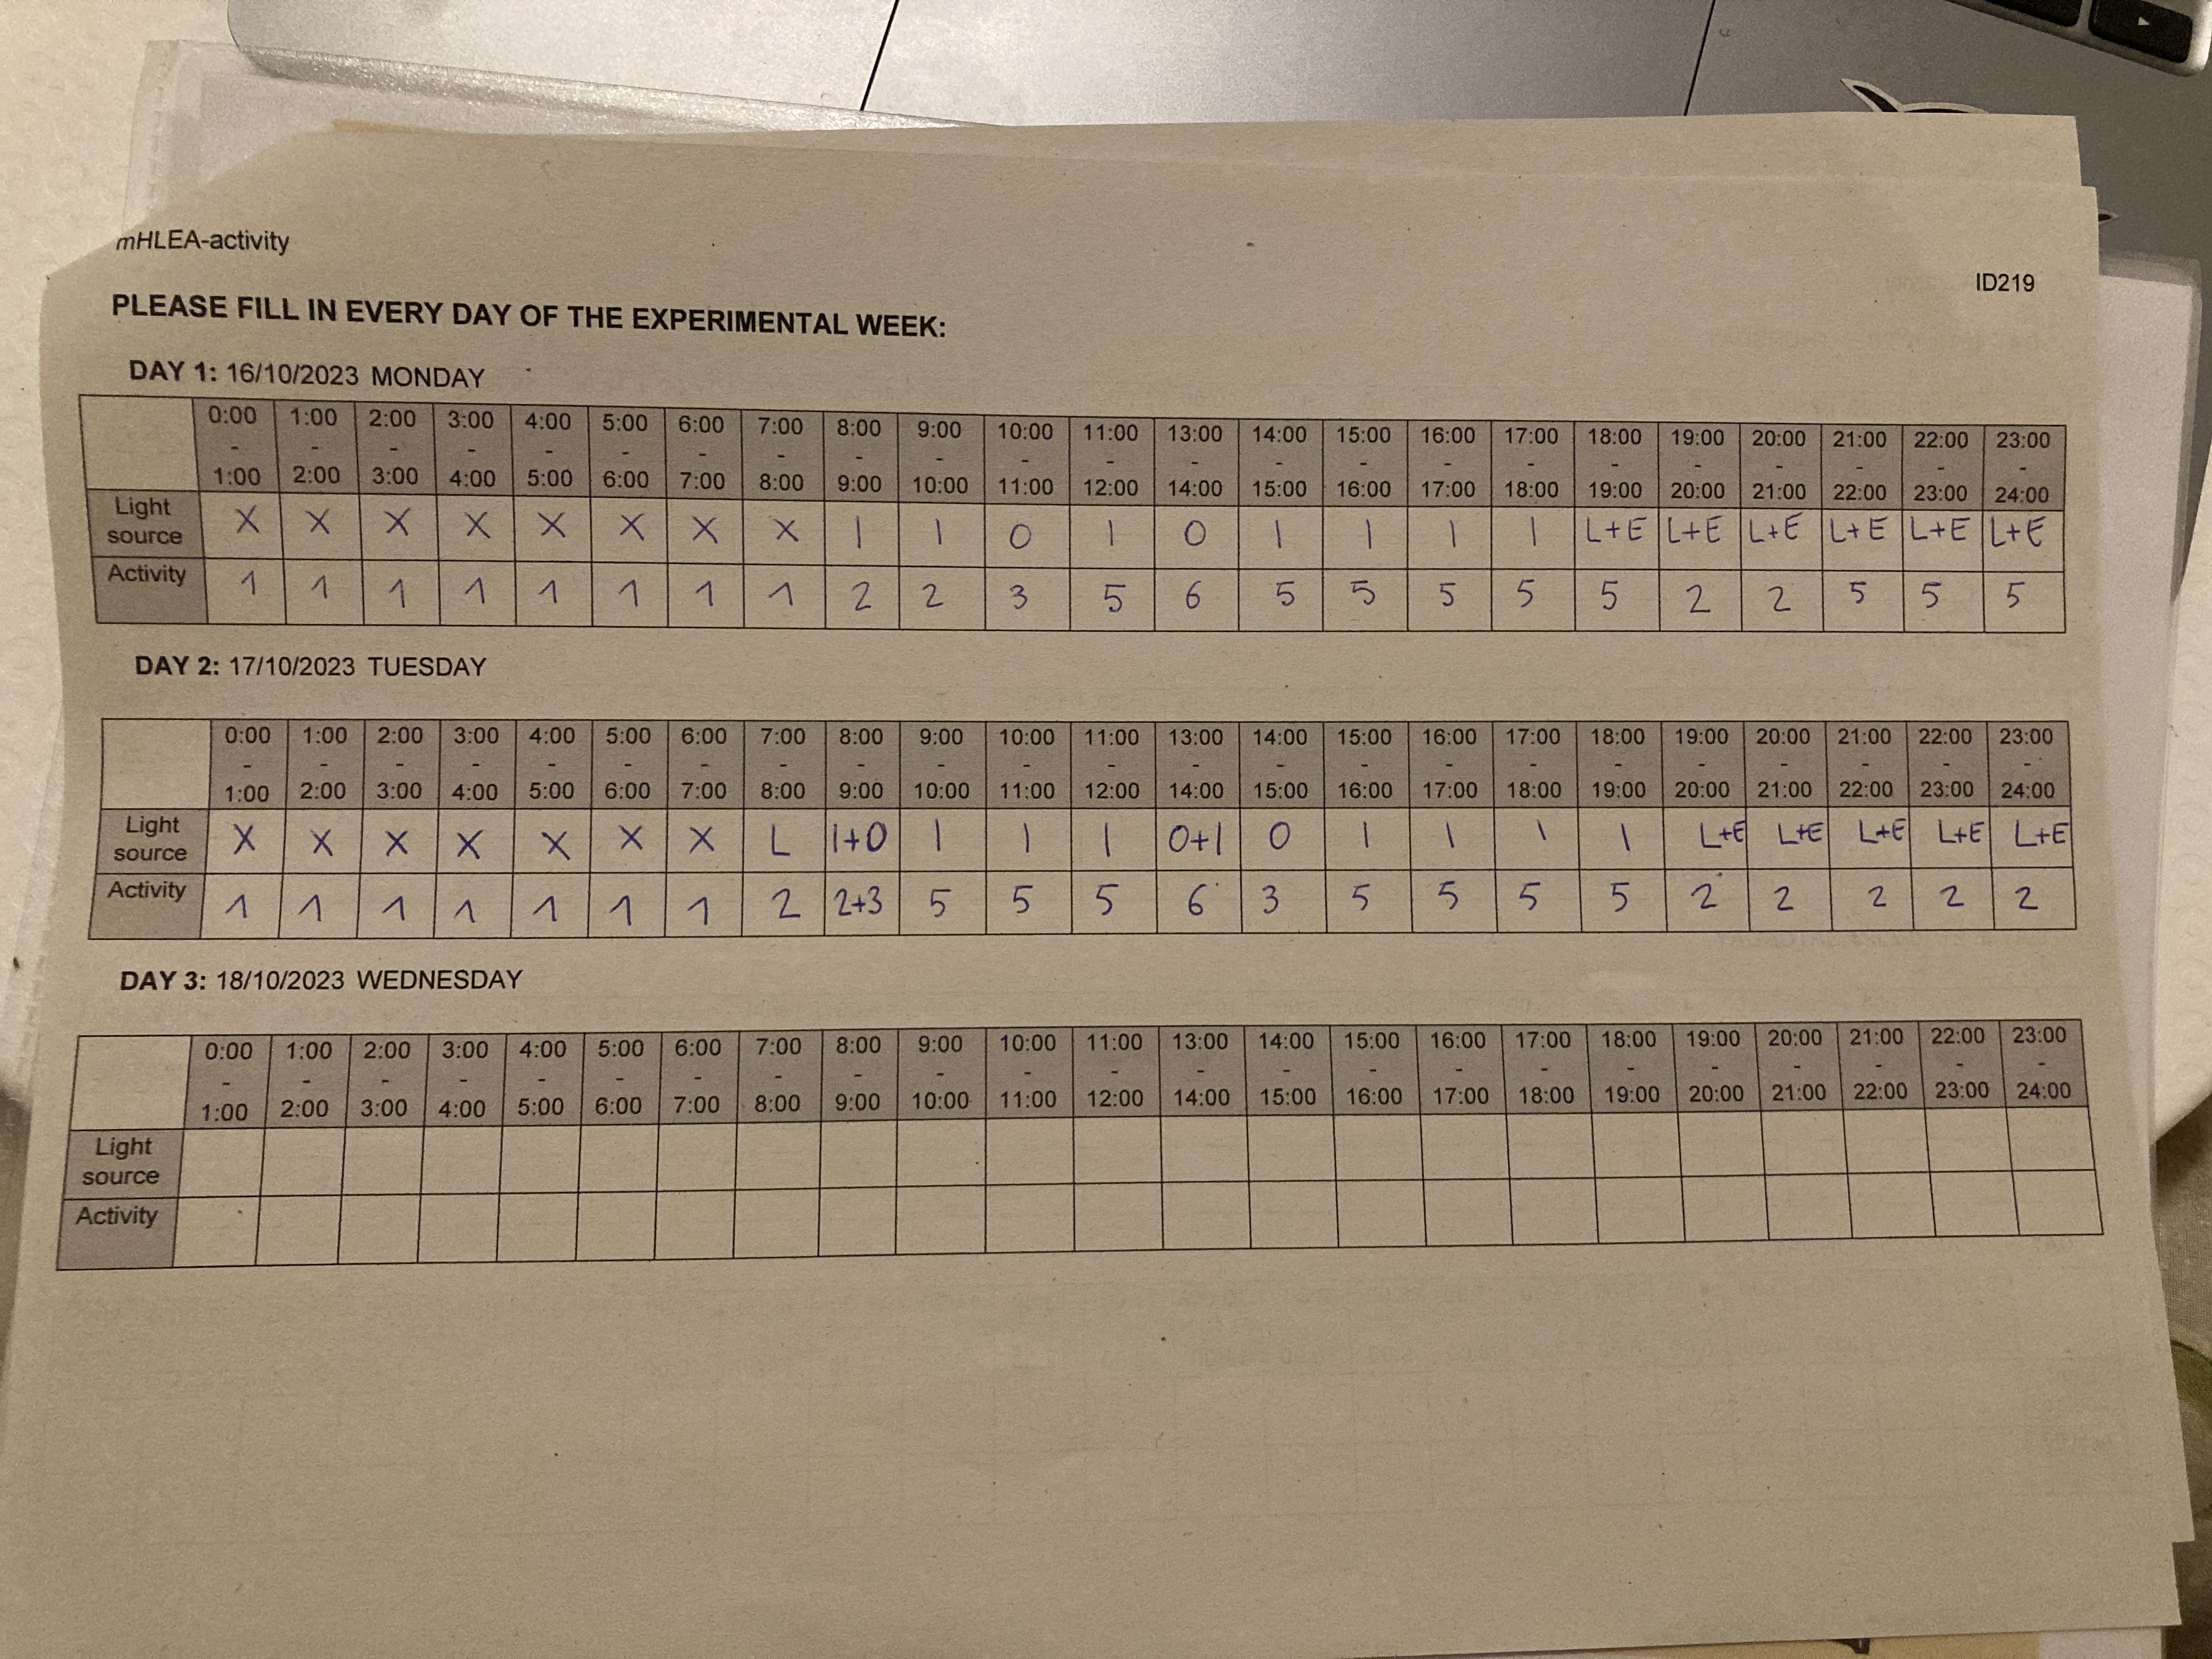 mHLEA-activity
ID219
PLEASE FILL IN EVERY DAY OF THE EXPERIMENTAL WEEK:
DAY 1: 16/10/2023 MONDAY
0:00 - 1:00 1:00 - 2:00 2:00 - 3:00 3:00 - 4:00 4:00 - 5:00 5:00 - 6:00 6:00 - 7:00 7:00 - 8:00 8:00 - 9:00 9:00 - 10:00 10:00 - 11:00 11:00 - 12:00 13:00 - 14:00 14:00 - 15:00 15:00 - 16:00 16:00 - 17:00 17:00 - 18:00 18:00 - 19:00 19:00 - 20:00 20:00 - 21:00 21:00 - 22:00 22:00 - 23:00 23:00 - 24:00
Light source X X X X X X X X I I O I O I I I I L+E L+E L+E L+E L+E L+E
Activity 1 1 1 1 1 1 1 1 2 2 3 5 6 5 5 5 5 5 2 2 5 5 5
DAY 2: 17/10/2023 TUESDAY
0:00 - 1:00 1:00 - 2:00 2:00 - 3:00 3:00 - 4:00 4:00 - 5:00 5:00 - 6:00 6:00 - 7:00 7:00 - 8:00 8:00 - 9:00 9:00 - 10:00 10:00 - 11:00 11:00 - 12:00 13:00 - 14:00 14:00 - 15:00 15:00 - 16:00 16:00 - 17:00 17:00 - 18:00 18:00 - 19:00 19:00 - 20:00 20:00 - 21:00 21:00 - 22:00 22:00 - 23:00 23:00 - 24:00
Light source X X X X X X X L I+O I I I O+I O I I I I L+E L+E L+E L+E L+E
Activity 1 1 1 1 1 1 1 2 2+3 5 5 5 6 3 5 5 5 5 2 2 2 2 2
DAY 3: 18/10/2023 WEDNESDAY
0:00 - 1:00 1:00 - 2:00 2:00 - 3:00 3:00 - 4:00 4:00 - 5:00 5:00 - 6:00 6:00 - 7:00 7:00 - 8:00 8:00 - 9:00 9:00 - 10:00 10:00 - 11:00 11:00 - 12:00 13:00 - 14:00 14:00 - 15:00 15:00 - 16:00 16:00 - 17:00 17:00 - 18:00 18:00 - 19:00 19:00 - 20:00 20:00 - 21:00 21:00 - 22:00 22:00 - 23:00 23:00 - 24:00
Light source
Activity